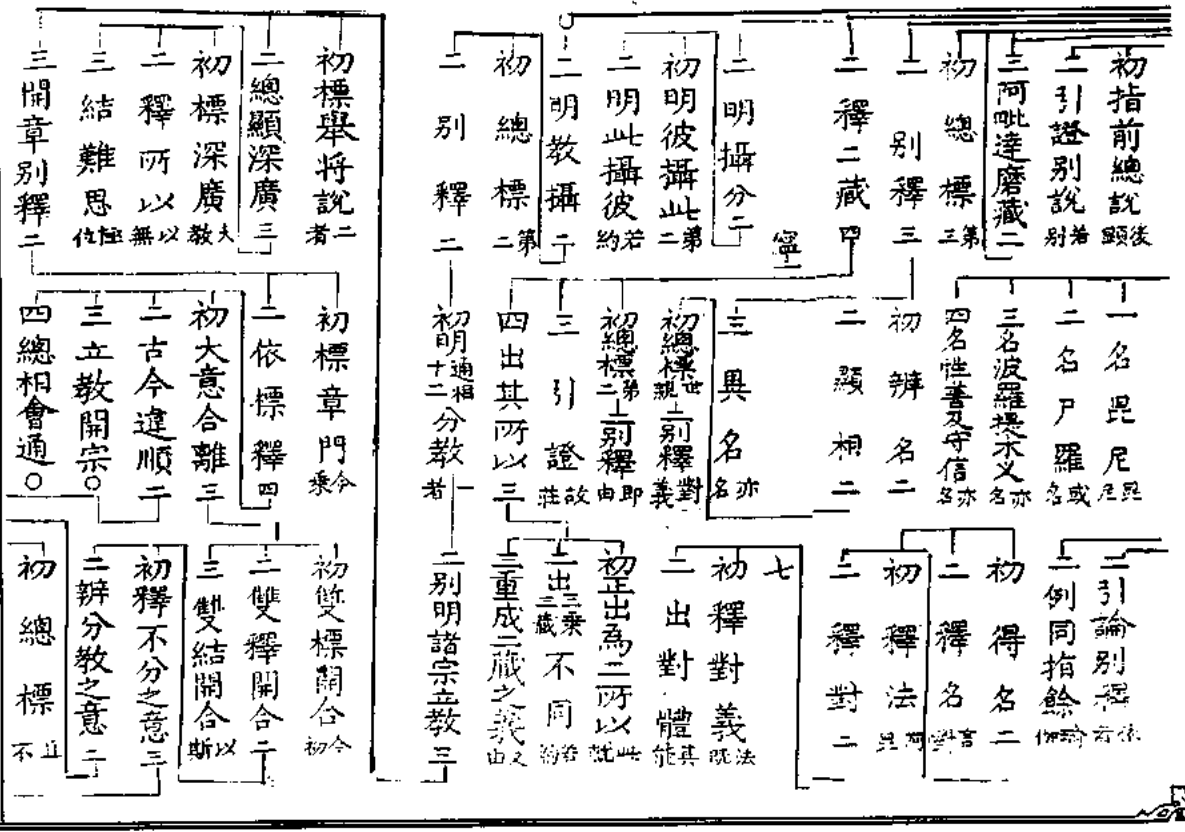 初指前總說 後顯
二引證別說 若別
三阿毗達磨藏二
初總標 第三
二別釋三
二釋二藏四
寧一
二明攝分二
初明彼攝此 第二
二明此攝彼 若約
二明教攝二
初總標 第二
二別釋二
初標舉將說 二者
二總顯深廣三
初標深廣 夫教
二釋所以 以無
三結難思 極位
三開章別釋二
一名毘尼 毘尼
二名尸羅 或名
三名波羅提木义 亦名
四名性善及守信 亦名
初辨名二
二顯相二
三異名 亦名
初總標 世親 二別釋 對義
初總標 第二 二別釋 即由
三引證 故莊
四出其所以三
初明通相十二分教 一者
初標章門 今乘
二依標釋四
初大意合離三
二古今違順二
三立教開宗○
四總相會通○
二引論別釋
二例同指餘 瑜伽
初得名二
二釋名 言對
初釋法 阿毘
二釋對二
七
初釋對義 法既
二出對體 其能
初正出為二所以 此就
二出三乘三藏不同 若約
三重成二藏之義 又由
二別明諸宗立教三
初雙標開合 今初
二雙釋開合二
三雙結開合 以斯
初釋不分之意三
二辨分教之意二
初總標 且不